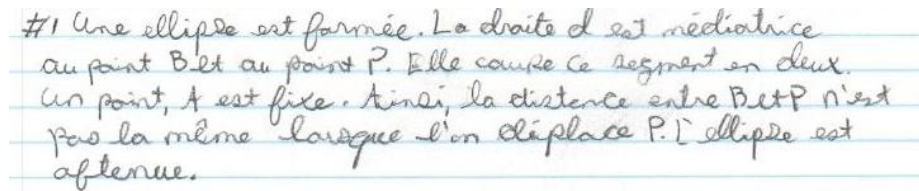 #1 Une ellipse est formée. La droite d est médiatrice
au point B et au point P. Elle coupe ce segment en deux.
Un point, A est fixe. Ainsi, la distence entre B et P n'est
pas la même lorsque l'on déplace P. L'ellipse est
obtenue.